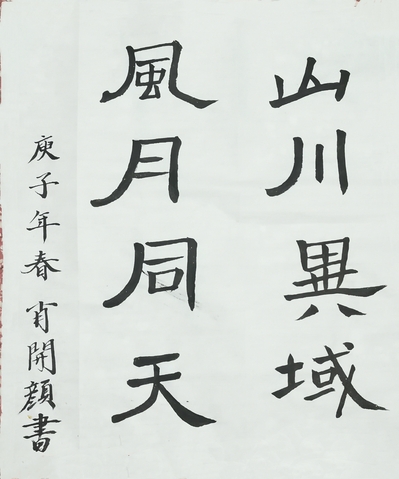 山川異域
風月同天
庚子年春肖開顔書